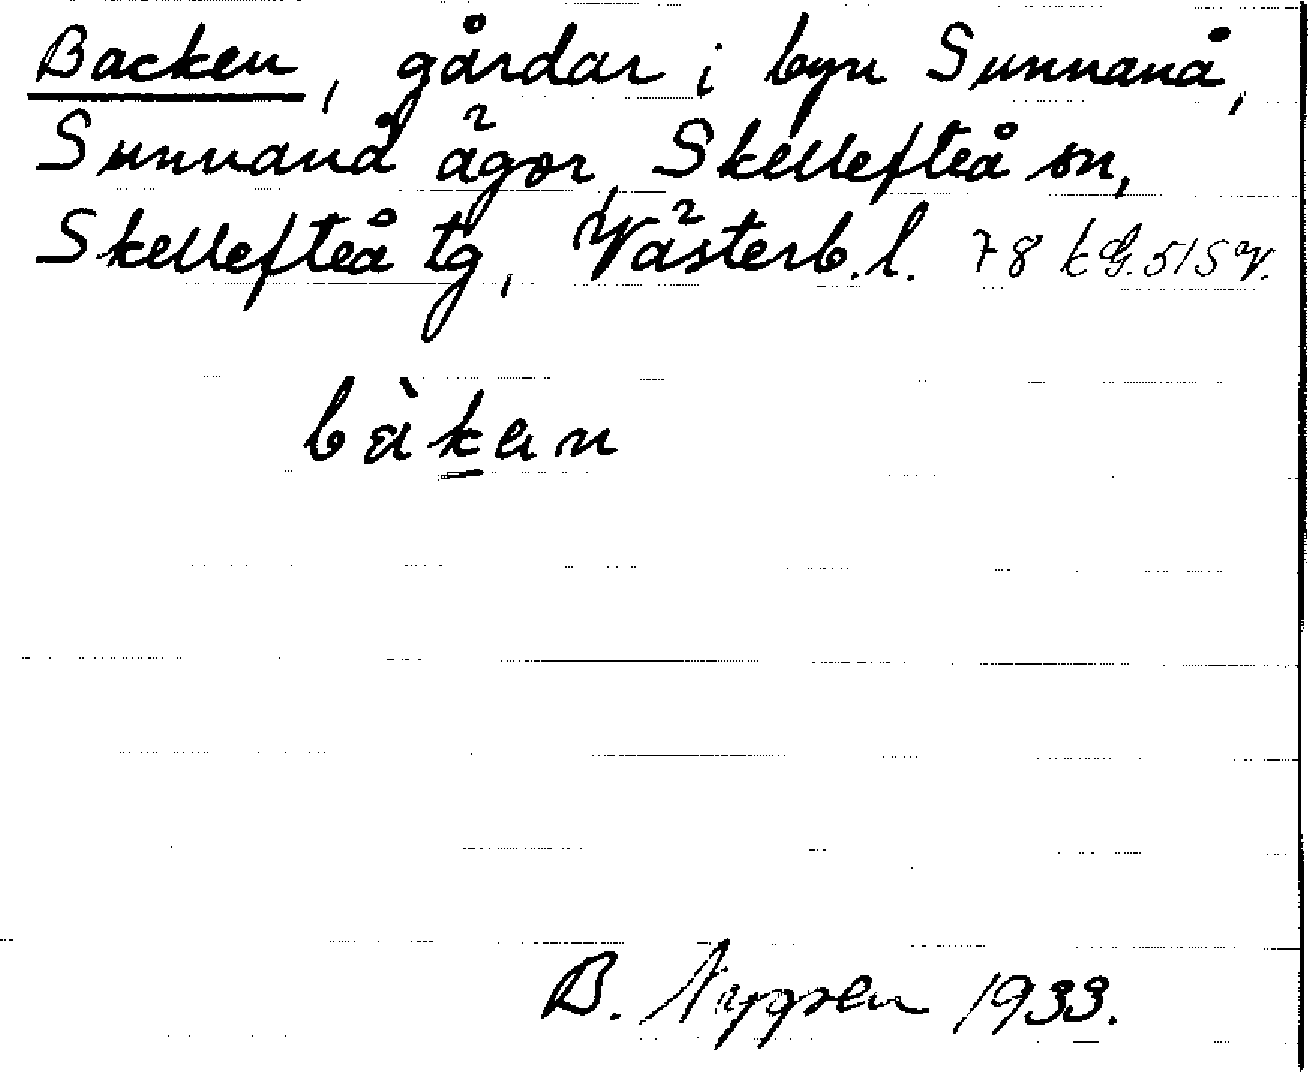 Backen, gårdar i byn Sunnanå,
Sunnanå ägor, Skellefteå sn,
Skellefteå tg, Västerb. l. 78 kG. 515 v.
bàkan
B. Nygren 1933.